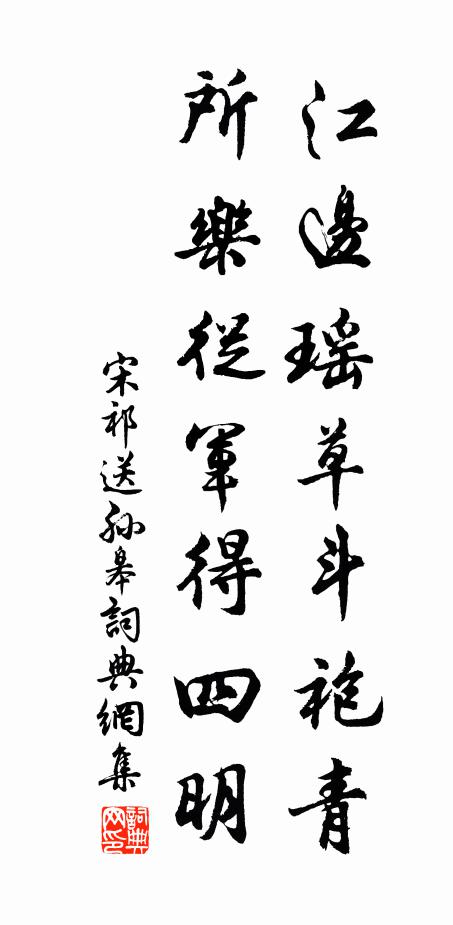 江邊瑤草斗袍青
所樂從軍得四明
宋祁送孙皋詞典網集
詞典网印